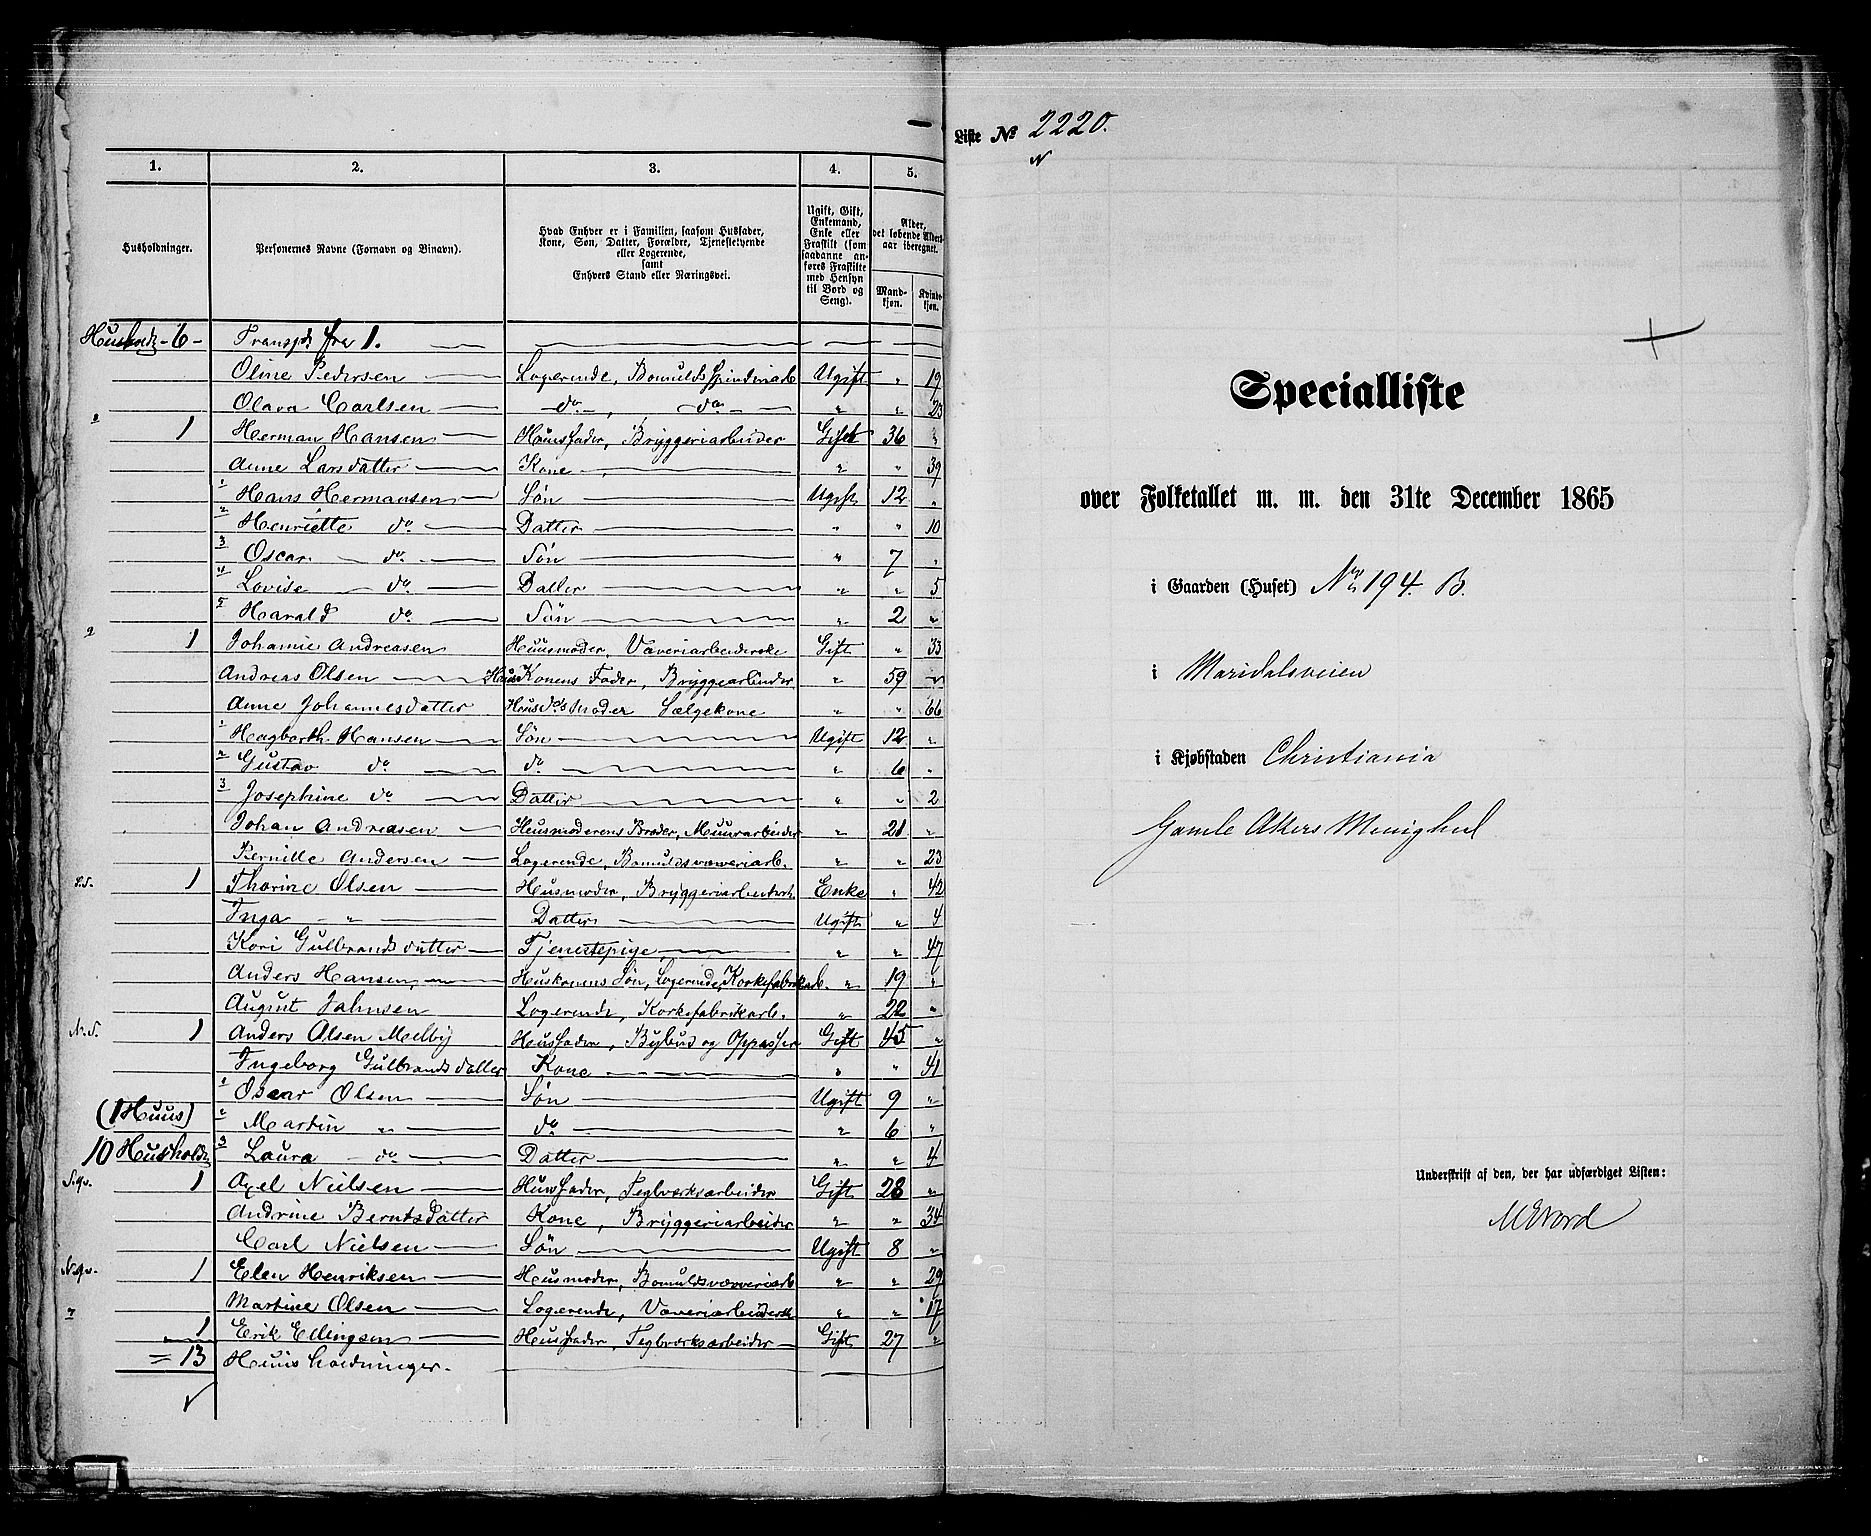 1. 2. 3. 4. 5.
Husholdninger.
Personernes Navne (Fornavn og Binavn).
Hvad Enhver er i Familien, saasom Husfader,
Kone, Søn, Datter, Forældre, Tjenestetyende
eller Logerende,
samt
Enhvers Stand eller Næringsvei.
Ugift, Gift,
Enkemand,
Enke eller
Fraskilt (som
saadanne an-
føres Fraskilte
med Hensyn
til Bord og
Seng).
Alder,
det løbende Alders-
aar iberegnet.
Mand-
kjøn.
Kvinde-
kjøn.
6 - Transpt fra 1.
Oline Pedersen Logerende, Bomulds Spinderiarb Ugift " 19
Olava Carlsen do, do " " 23
1 Herman Hansen Huusfader, Bryggeriarbeider Gift 36 "
Anne Larsdatter Kone " " 39
1 Hans Hermansen Søn Ugift 12 "
2 Henriette do Datter " " 10
3 Oscar do Søn " 7 "
4 Lovise do Datter " " 5
5 Harald do Søn " 2 "
1 Johanne Andreasen Huusmoder, Væveriarbeiderske Gift " 33
Andreas Olsen Konens Fader, Bryggearbeider " 59 "
Anne Johannesdatter do Moder Sælgekone " " 66
1 Hagbarth Hansen Søn Ugift 12 "
2 Gustav do do " 6 "
3 Josephine do Datter " " 2
Johan Andreasen Huusmoderens Broder, Muurarbeider " 21 "
Pernille Andersen Logerende, Bomuldsvæveriarb. " " 23
1 Thorine Olsen Husmoder, Bryggeriarbeidersk Enke " 42
Inga " Datter Ugift " 4
Kari Gulbrandsdatter Tjenestepige " " 47
Anders Hansen Huskonens Søn, Logerende, Korkefabrikarb. " 19 "
August Jahnsen Logerende, Korkefabrikarb. " 22 "
1 Anders Olsen Melby Huusfader, Bybud og Oppasser Gift 45 "
Ingeborg Gulbrandsdatter Kone " " 41
1 Oscar Olsen Søn Ugift 9 "
(1 Huus) 2 Martin " do " 6 "
10 Husholdn 3 Laura do Datter " " 4
1 Axel Nielsen Huusfader, Teglværksarbeider Gift 28 "
Andrine Berntsdatter Kone, Bryggeriarbeider " " 34
Carl Nielsen Søn Ugift 8 "
1 Elen Henriksen Husmoder, Bomuldsvæveriarb " " 29
Martine Olsen Logerende, Væveriarbeidersk " " 17
1 Erik Ellingsen Huusfader, Teglværksarbeider Gift 27 "
= 13 Huusholdninger.
Liste No 2220.
Specialliste
over Folketallet m. m. den 31te December 1865
i Gaarden (Huset) No 194. B.
i Maridalsveien
i Kjøbstaden Christiania
Gamle Akers Menighed
Underskrift af den, der har udfærdiget Listen: